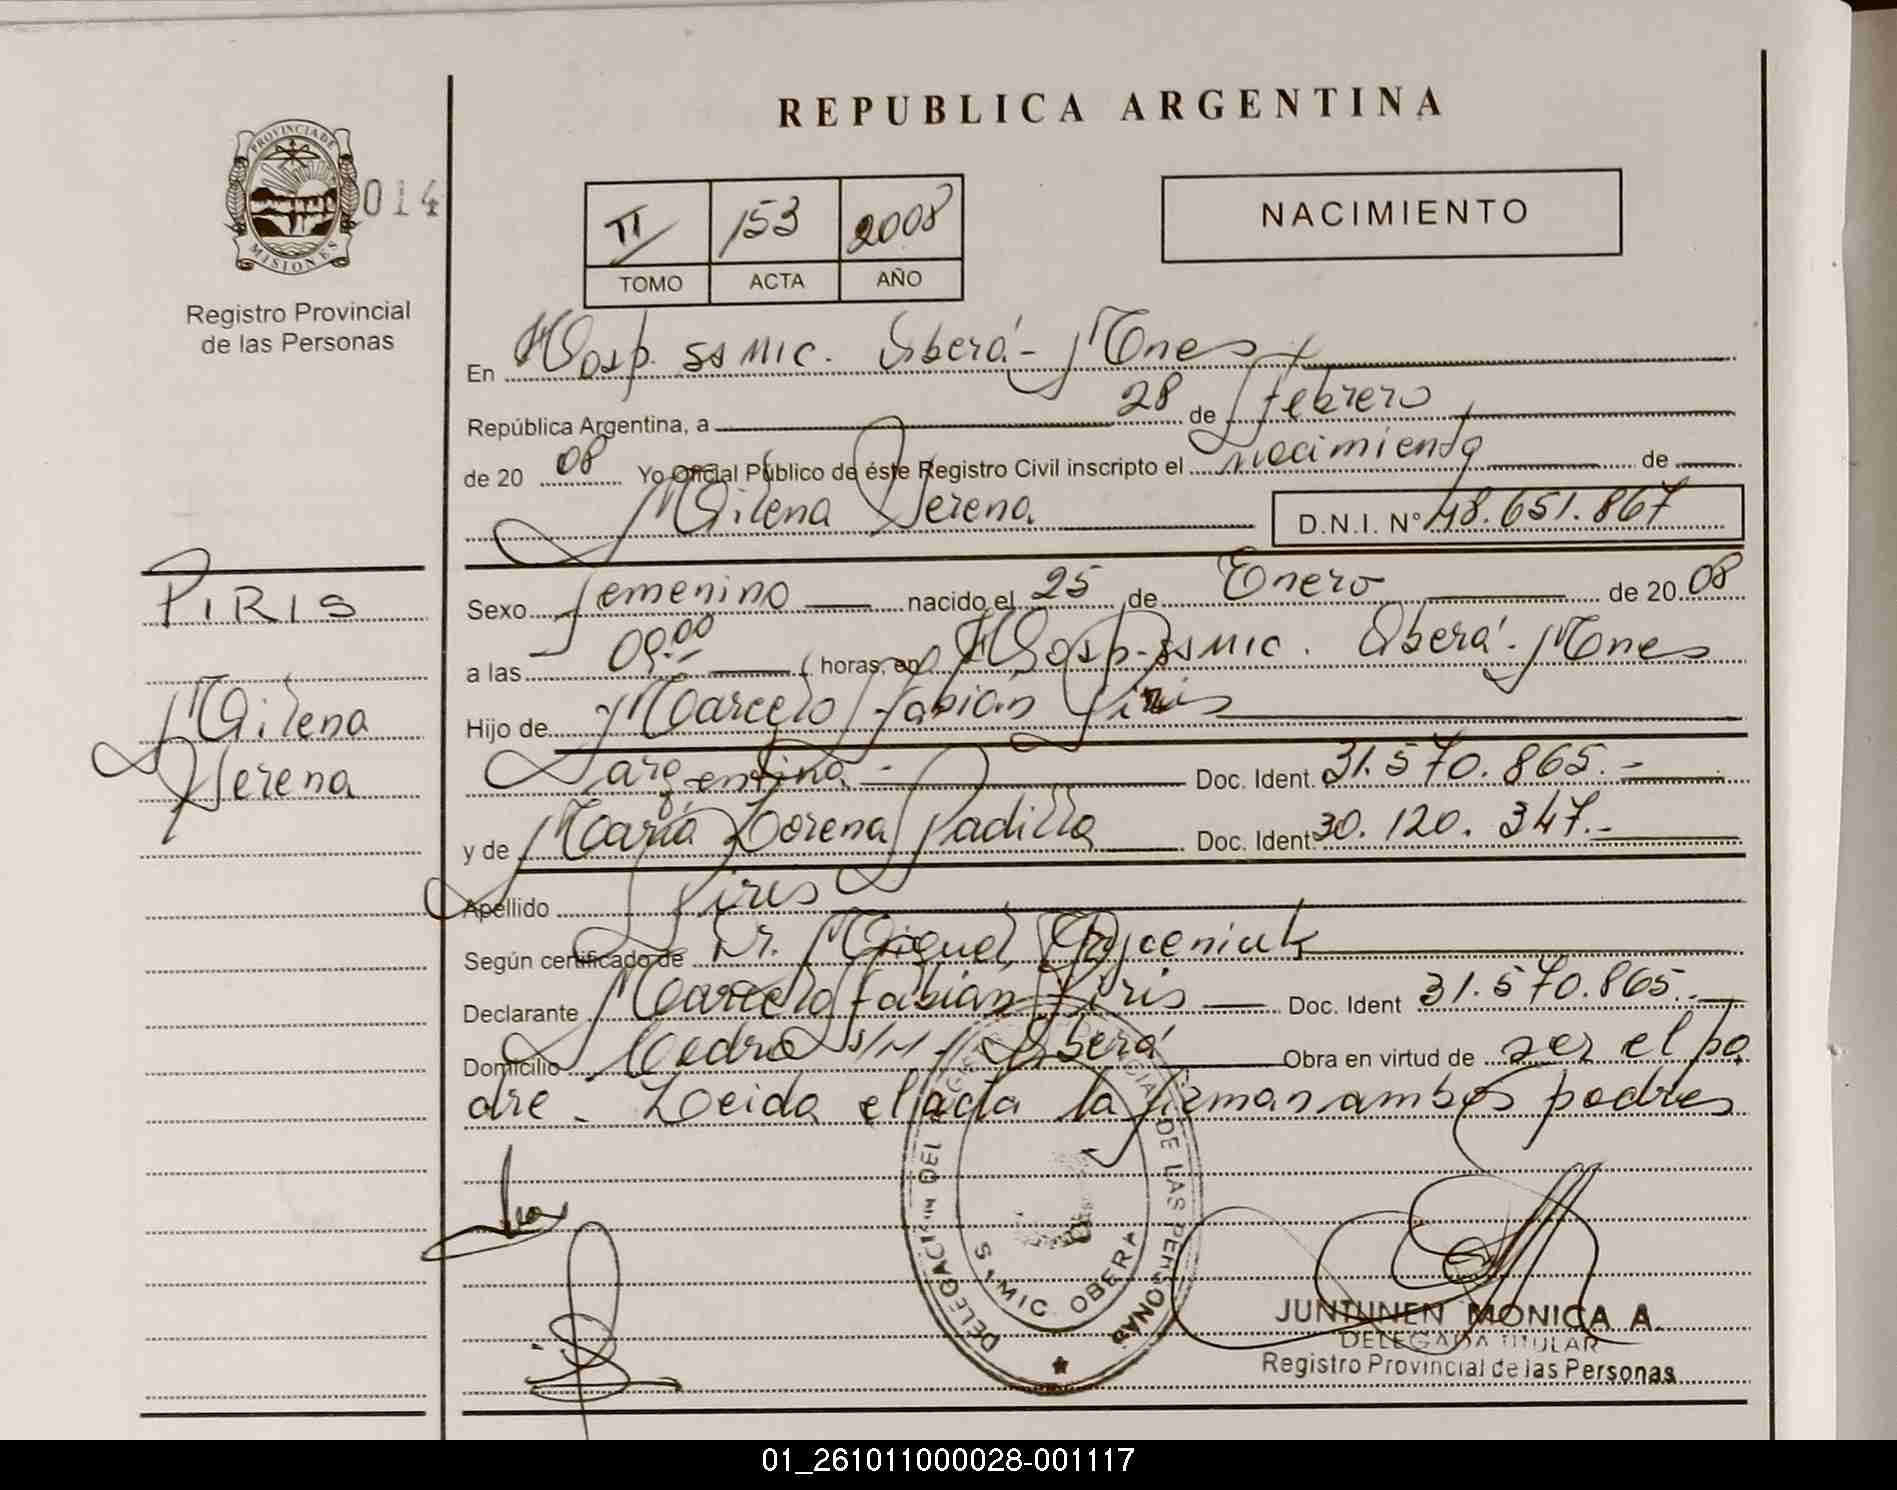 REPUBLICA ARGENTINA
PROVINCIA DE MISIONES
014
Registro Provincial
de las Personas
II 153 2008
TOMO ACTA AÑO
NACIMIENTO
En Hosp. SSMIC. Oberá - Mnes
República Argentina, a 28 de febrero
de 20 08 Yo Oficial Público de éste Registro Civil inscripto el nacimiento de
Milena Yerena D.N.I. N° 48.651.867
PIRIS
Milena
Yerena
Sexo femenino nacido el 25 de Enero de 20 08
a las 09.00 horas, en Hosp. SSMIC. Oberá - Mnes
Hijo de Marcelo Fabián Piris
argentina - Doc. Ident. 31.570.865.-
y de María Lorena Padilla Doc. Ident 30.120.347.-
Apellido Piris
Según certificado de Dr. Miguel
Declarante Marcelo Fabián Piris Doc. Ident 31.570.865.-
Domicilio Cedro s/n - Oberá Obra en virtud de ser el pa
dre - Leida el acta la firman ambos padres
DELEGACION DEL REGISTRO PROVINCIAL DE LAS PERSONAS
SAMIC OBERA
JUNTUNEN MONICA A.
DELEGADA TITULAR
Registro Provincial de las Personas
01_261011000028-001117